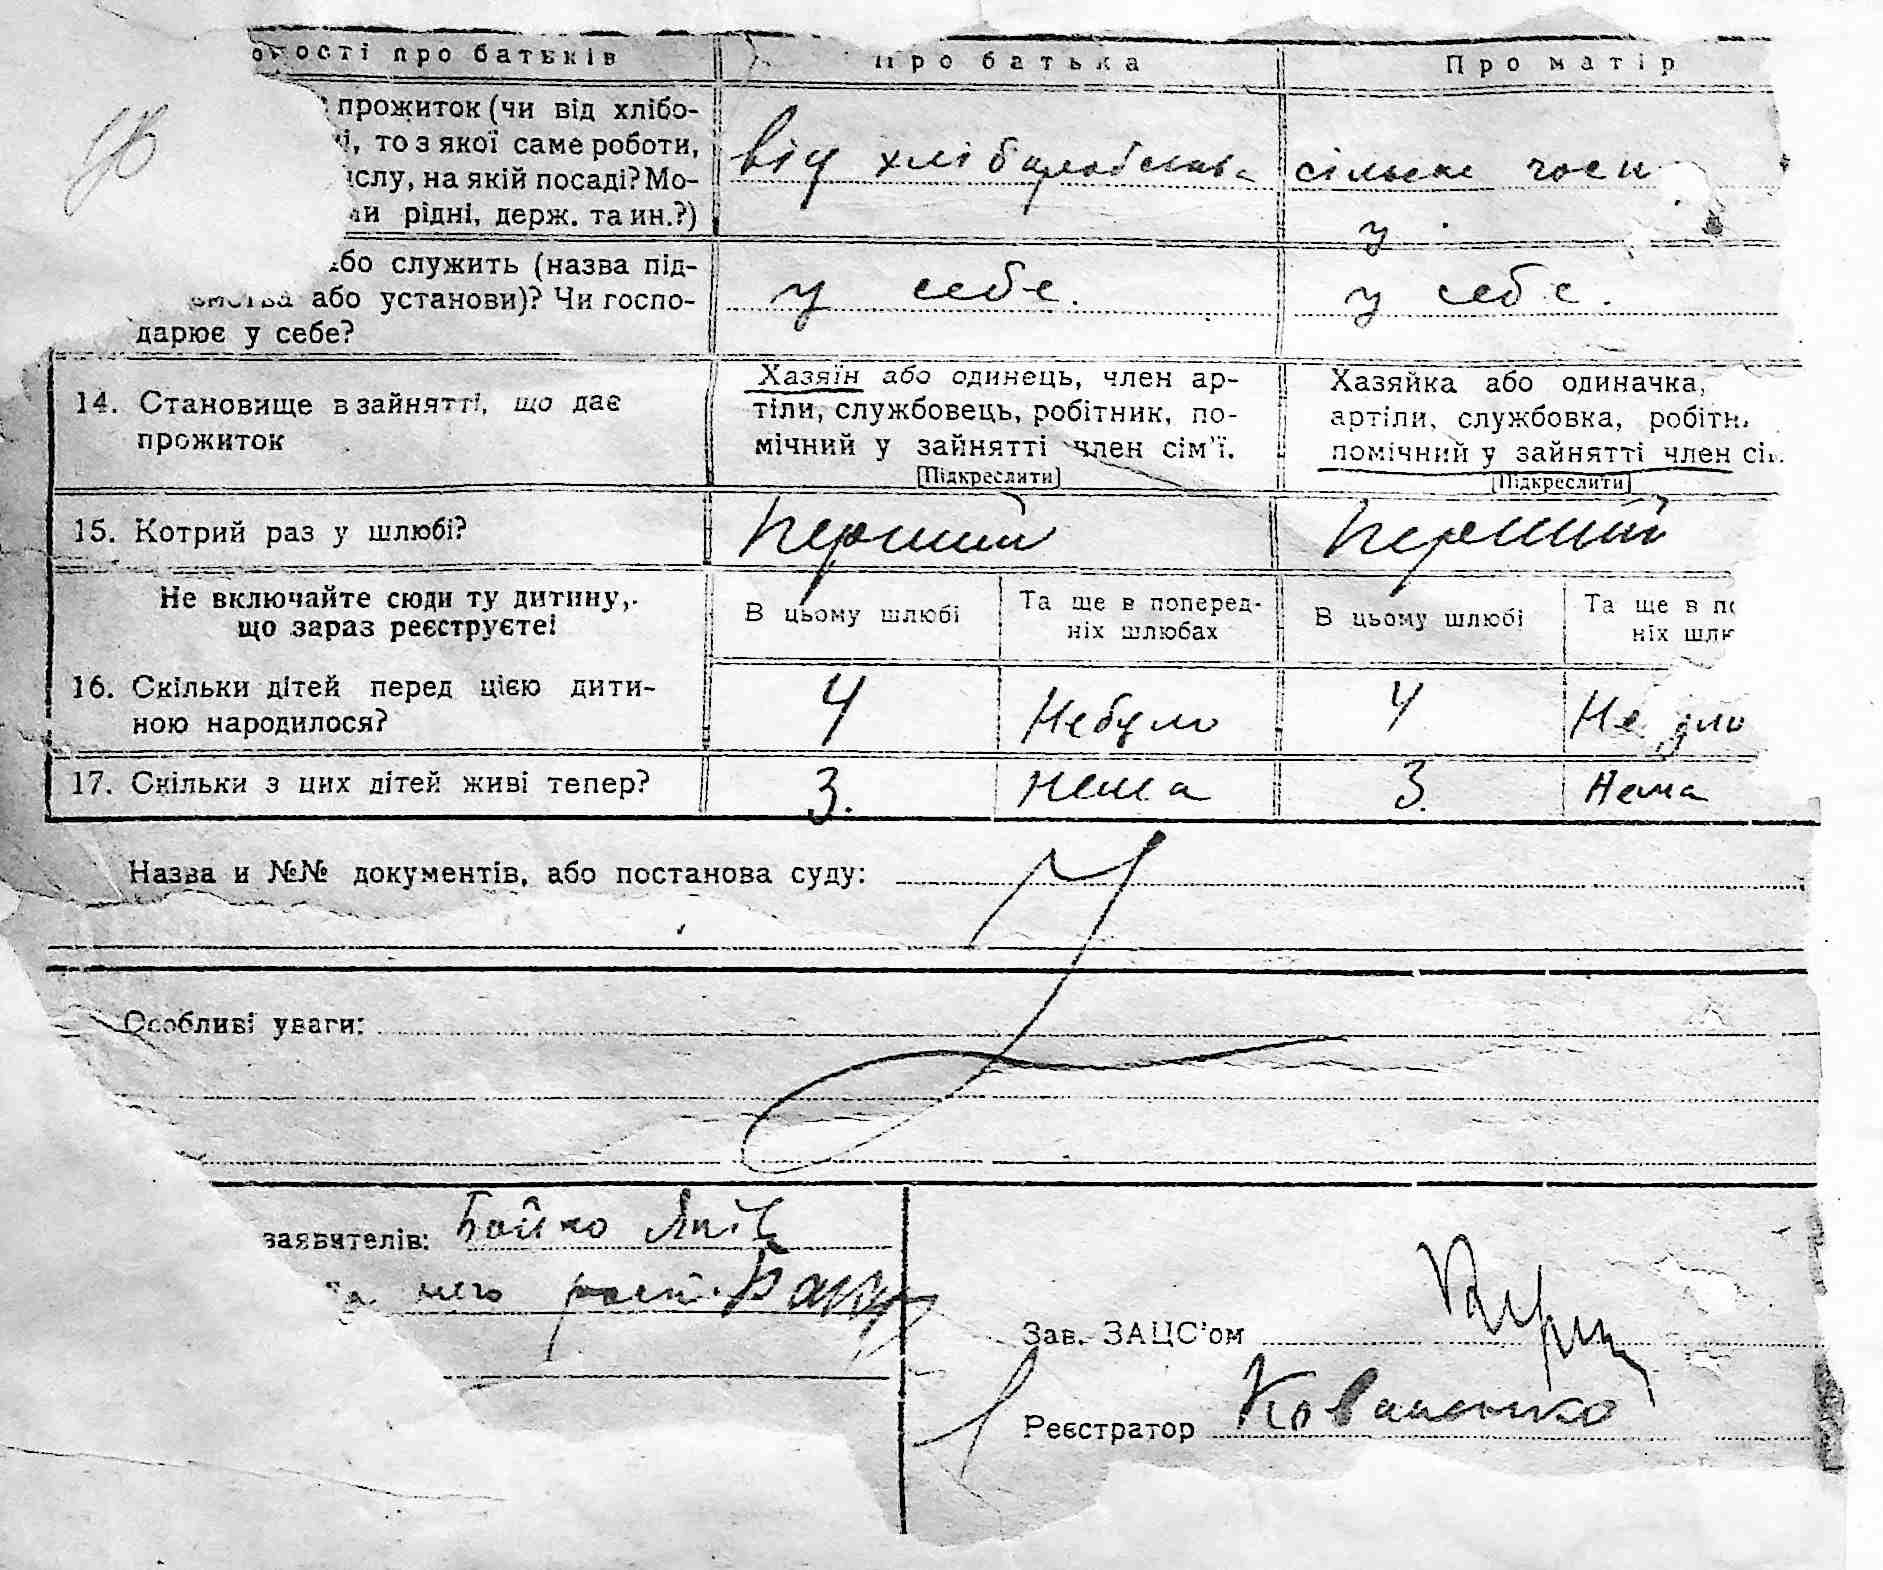 ості про батьків
Про батька
Про матір
прожиток (чи від хлібо-
і, то з якої саме роботи,
ислу, на якій посаді? Мо-
ми рідні, держ. та ин.?)
від хліборобства
сільске госп
у
або служить (назва під-
ємства або установи)? Чи госпо-
дарює у себе?
у себе.
у себе.
14. Становище в зайнятті, що дає
прожиток
Хазяїн або одинець, член ар-
тіли, службовець, робітник, по-
мічний у зайнятті член сім'ї.
[Підкреслити]
Хазяйка або одиначка,
артіли, службовка, робітн
помічний у зайнятті член сі
[Підкреслити]
15. Котрий раз у шлюбі?
Перший
Перший
Не включайте сюди ту дитину,
що зараз реєструєте!
В цьому шлюбі
Та ще в поперед-
ніх шлюбах
В цьому шлюбі
Та ще в по
ніх шлю
16. Скільки дітей перед цією дити-
ною народилося?
4
Небуло
4
Не
17. Скільки з цих дітей живі тепер?
3.
Нема
3.
Нема
Назва и №№ документів, або постанова суду:
Особливі уваги:
заявителів: Бойко Яків
за него
Зав. ЗАЦС'ом
Реєстратор Коваленко